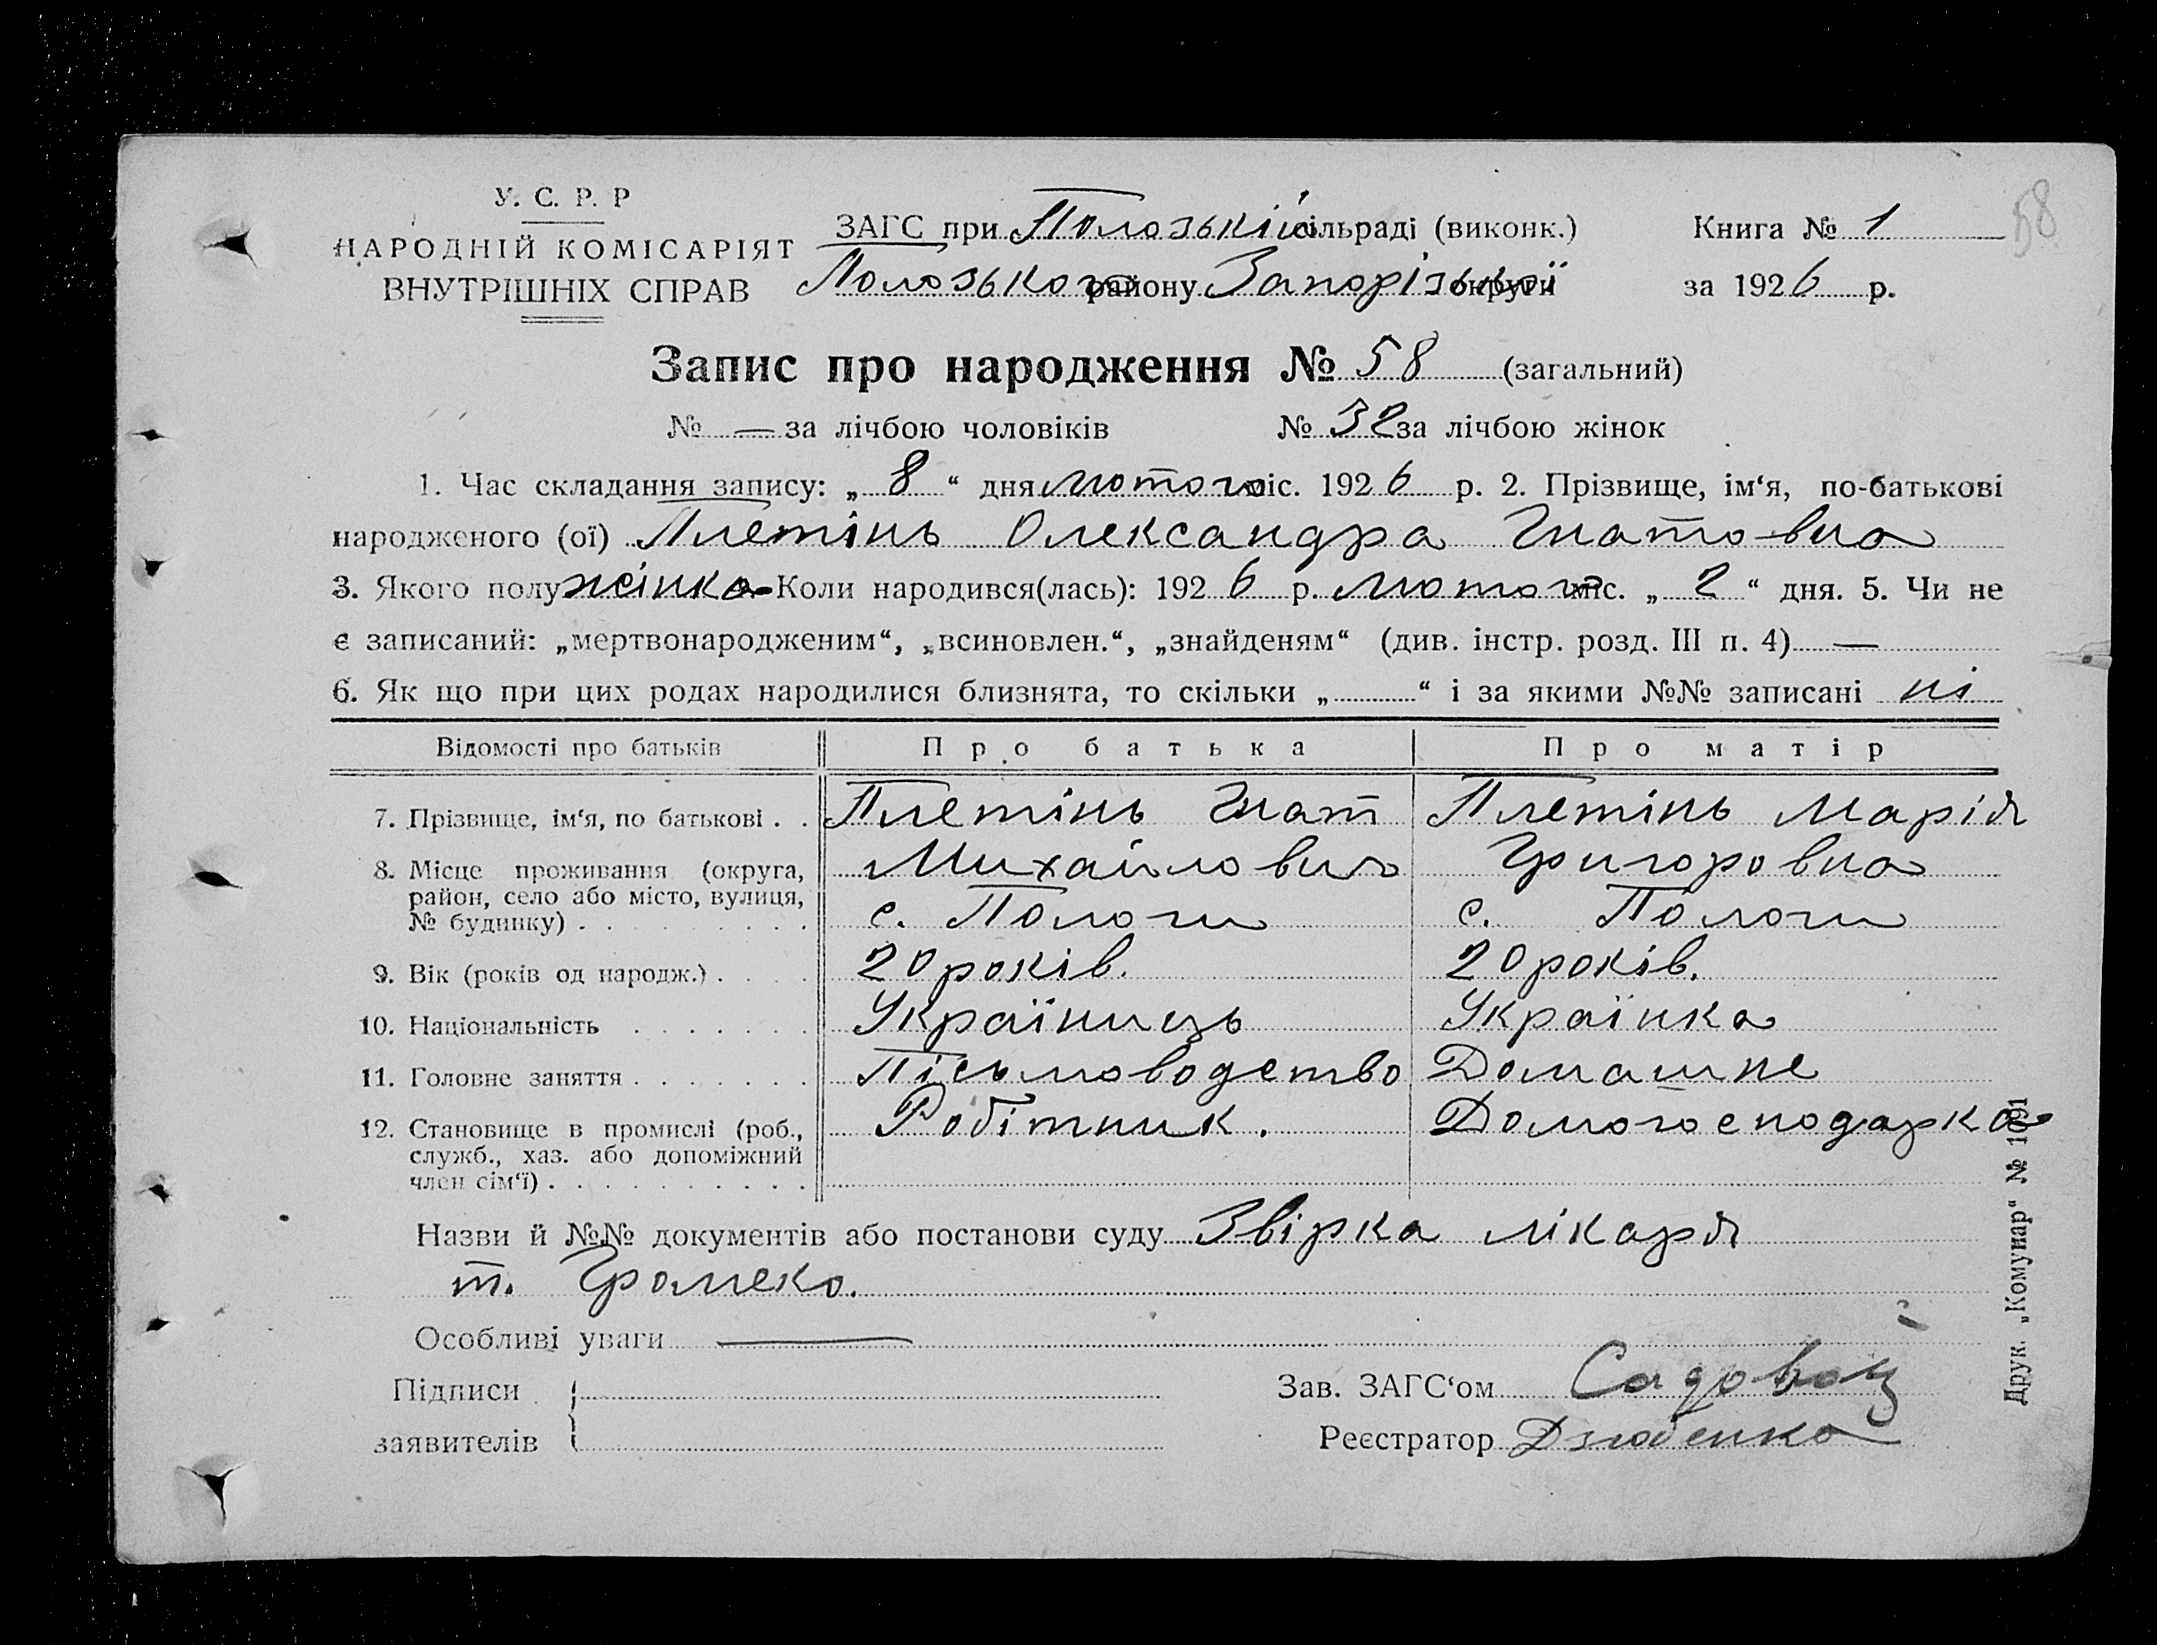 У. С. Р. Р
НАРОДНІЙ КОМІСАРІЯТ
ВНУТРІШНІХ СПРАВ
ЗАГС при Полозькій сільраді (виконк.)
Полозького району Запорізької округи
Книга № 1
за 1926 р.
58
Запис про народження № 58 (загальний)
№ — за лічбою чоловіків № 32 за лічбою жінок
1. Час складання запису: „ 8 “ дня лютого міс. 1926 р. 2. Прізвище, ім‘я, по-батькові
народженого (ої) Плетінь Олександра Гнатовна
3. Якого полу жінка Коли народився(лась): 1926 р. лютого міс. „ 2 “ дня. 5. Чи не
є записаний: „мертвонародженим“, „всиновлен.“, „знайденям“ (див. інстр. розд. III п. 4) —
6. Як що при цих родах народилися близнята, то скільки „ “ і за якими №№ записані ні
Відомості про батьків Про батька Про матір
7. Прізвище, ім‘я, по батькові . . Плетінь Гнат Плетінь Марія
Михайлович Григоровна
8. Місце проживання (округа,
район, село або місто, вулиця,
№ будинку) . с. Пологи с. Пологи
9. Вік (років од народж.) . 20 років. 20 років.
10. Національність Українець Українка
11. Головне заняття Пісьмоводство Домашнє
12. Становище в промислі (роб., Робітник. Домогосподарка
служб., хаз. або допоміжний
член сім‘ї) .
Назви й №№ документів або постанови суду Звірка лікаря
т. Громеко.
Особливі уваги —
Підписи
заявителів
Зав. ЗАГС‘ом Садовой
Реєстратор Дзюбенко
Друк. „Комунар“ № 1091